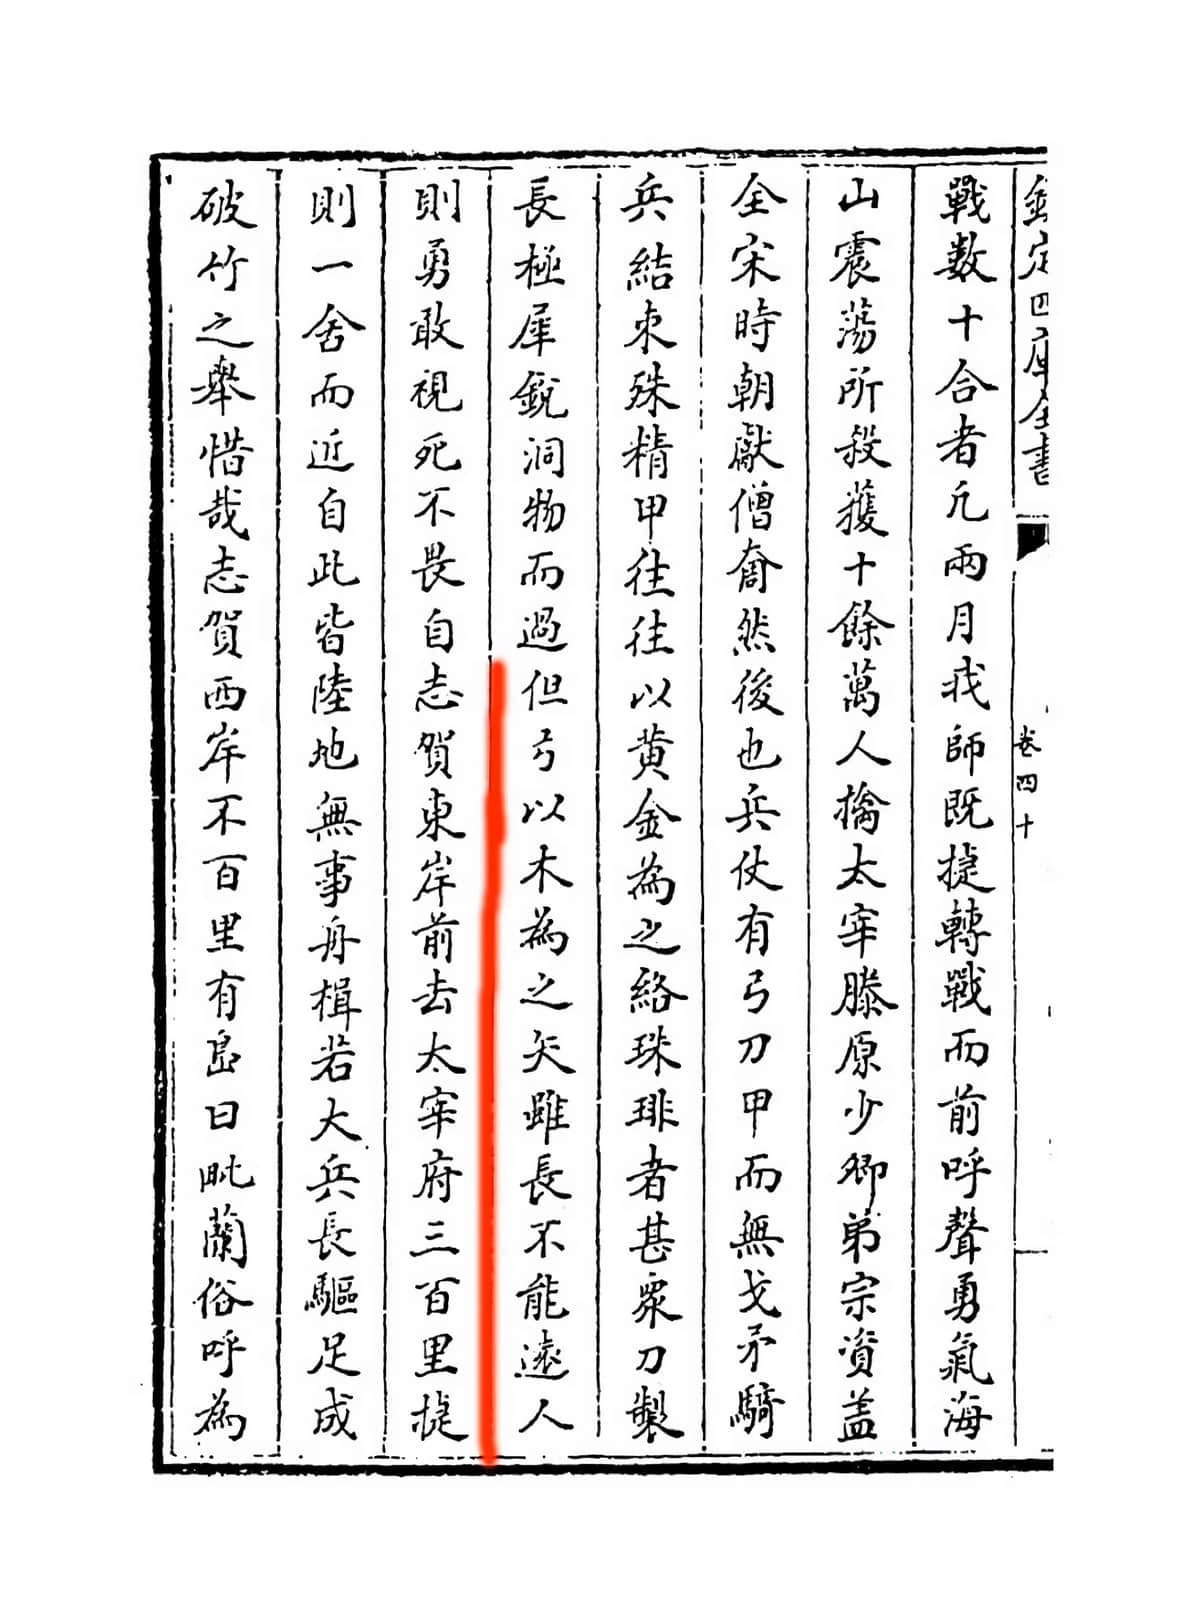 欽定四庫全書
卷四十
戰數十合者凡兩月我師既捷轉戰而前呼聲勇氣海
山震蕩所殺獲十餘萬人擒太宰滕原少卿弟宗資盖
全宋時朝獻僧奝然後也兵仗有弓刀甲而無戈矛騎
兵結束殊精甲往往以黄金為之絡珠琲者甚衆刀製
長極犀銳洞物而過但弓以木為之矢雖長不能遠人
則勇敢視死不畏自志賀東岸前去太宰府三百里捷
則一舍而近自此皆陸地無事舟楫若大兵長驅足成
破竹之舉惜哉志賀西岸不百里有島曰毗蘭俗呼為